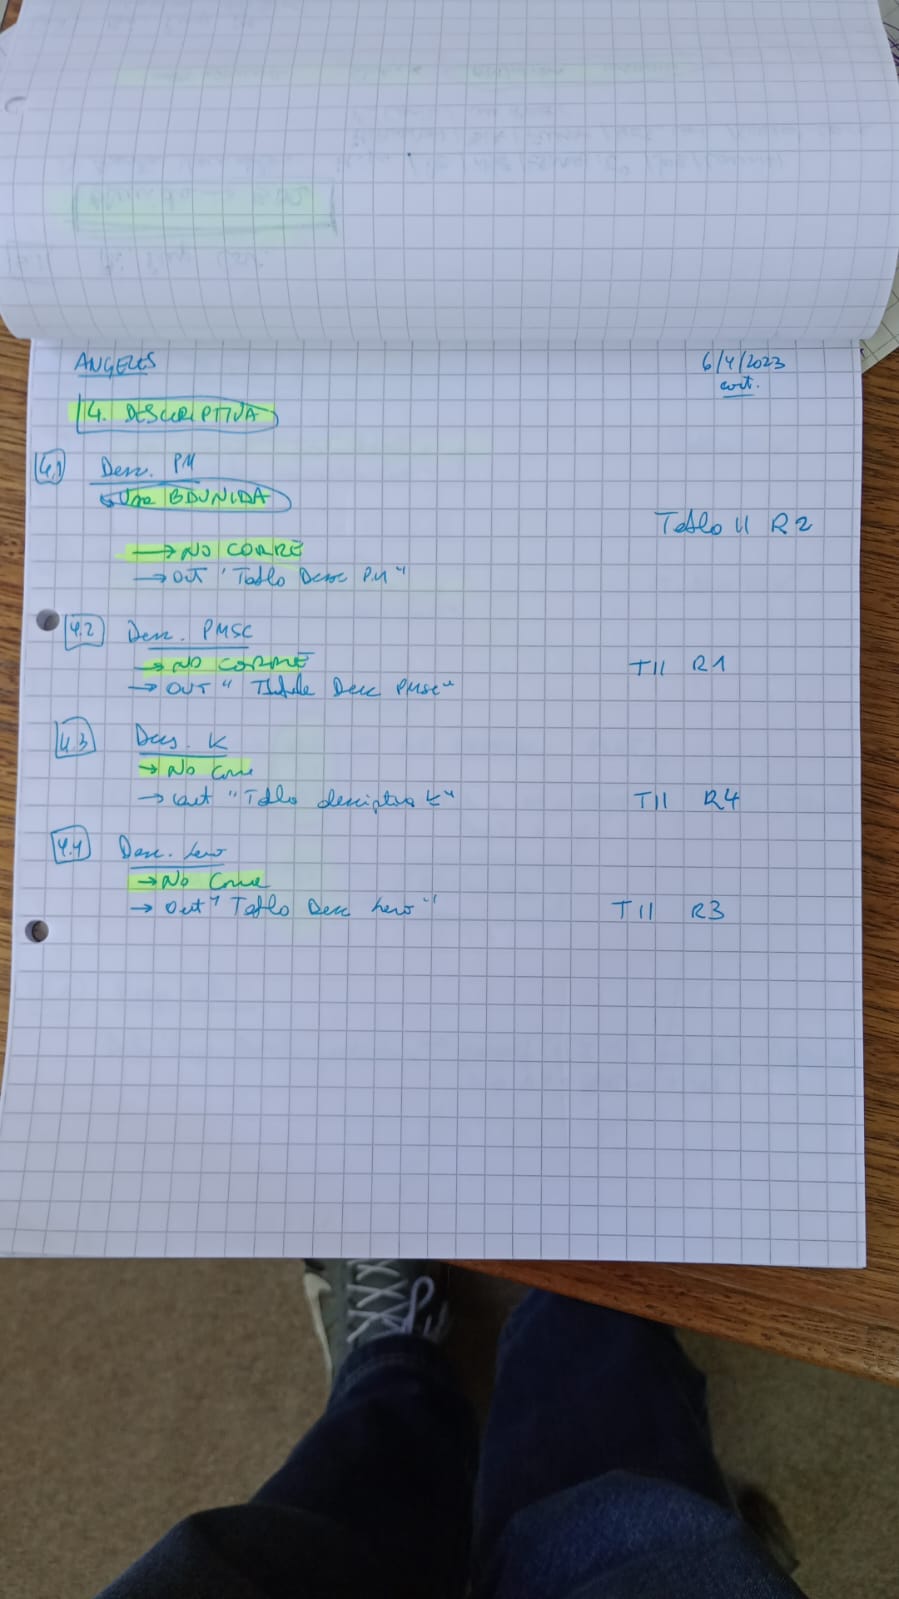 ANGELES
6/4/2023
cont.
4. DESCRIPTIVA
4.1 Desc. PM
Use BDUNIDA
Tabla 11 R2
→ NO CORRE
→ Out "Tabla Desc PM"
4.2 Desc. PMSC
→ NO CORRE
T11 R1
→ OUT " Desc PMSC"
4.3 Des. K
→ No Corre
→ out "Tabla descriptiva K"
T11 R4
4.4 Desc.
→ No Corre
→ Out "Tabla Desc
T11 R3